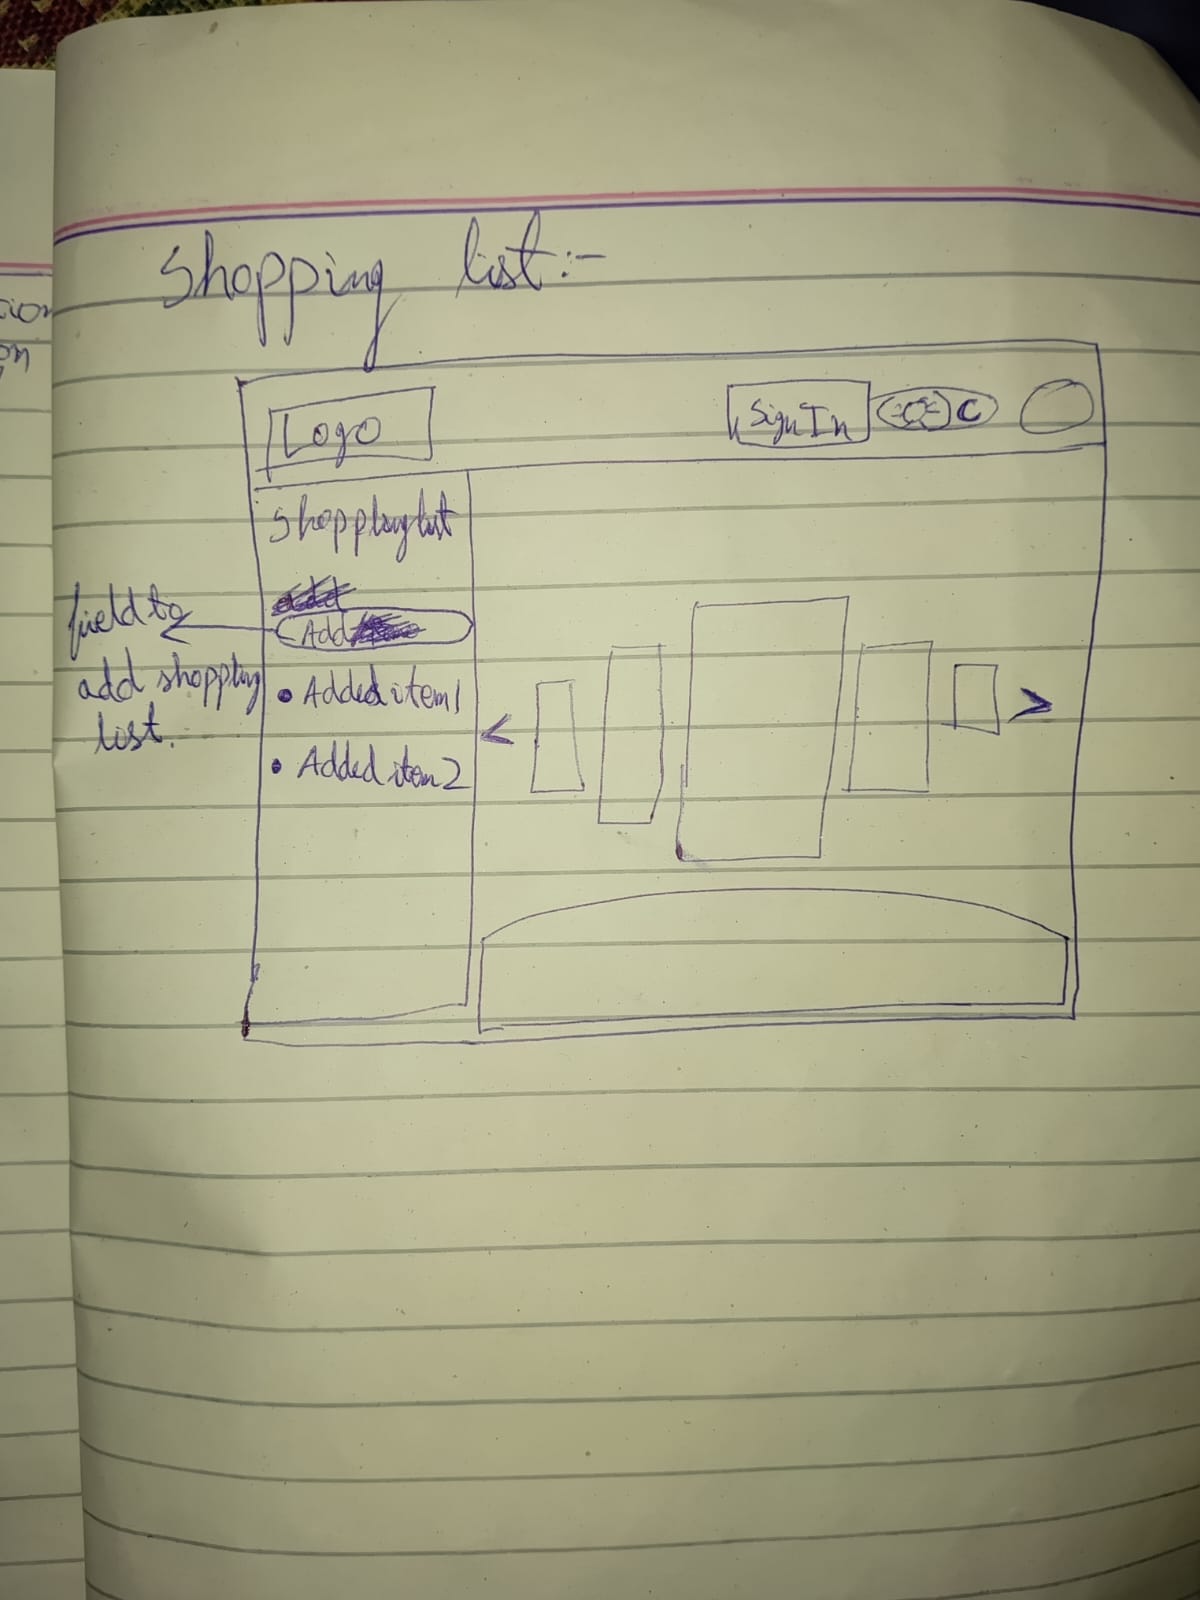 Shopping list:-
Logo
Sign In
C
Shopping list
Add
field to
add shopping
list.
• Added item 1
• Added item 2
<
>